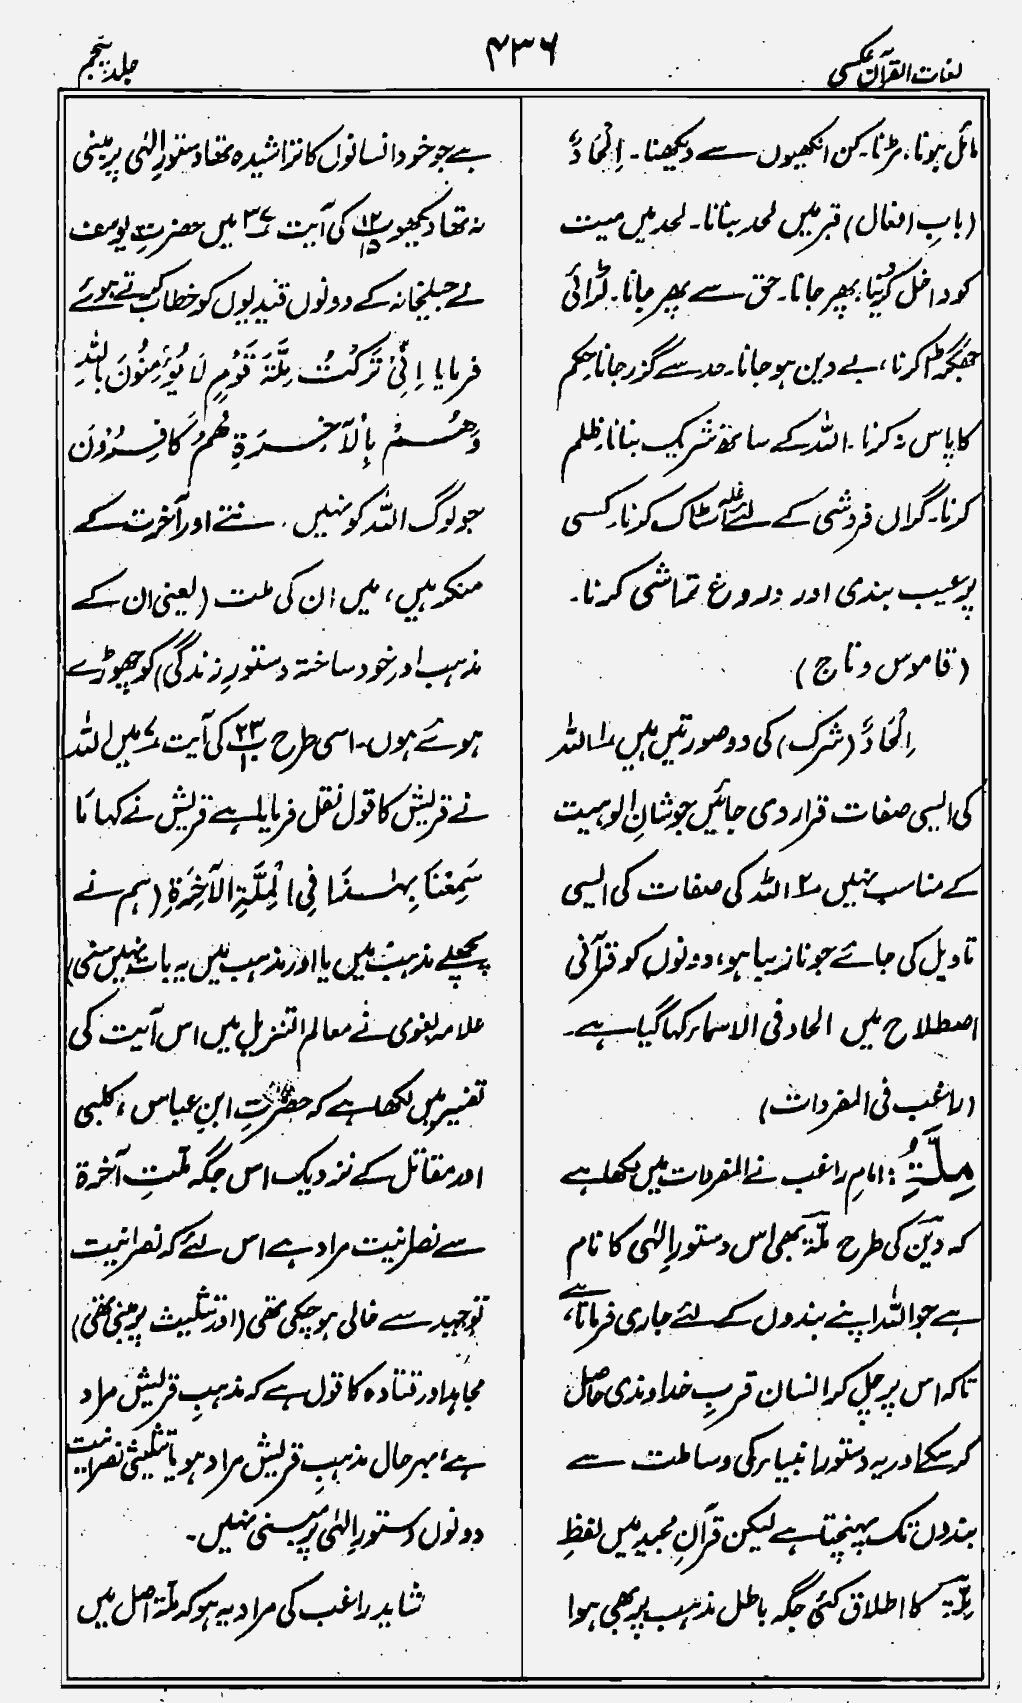 لغات القرآن عکسی
۴۳۶
جلد پنجم
مائل ہونا، مڑنا۔ کن انکھیوں سے دیکھنا۔ اِلْحَادٌ
(بابِ افعال) قبر میں لحد بنانا۔ لحد میں میت
کو داخل کرنا، پھر جانا۔ حق سے پھر جانا۔ لڑائی
جھگڑا کرنا، بے دین ہو جانا۔ حد سے گزر جانا حکم
کا پاس نہ کرنا۔ اللہ کے ساتھ شریک بنانا۔ ظلم
کرنا۔ گراں فروشی کے لئے غلہ اسٹاک کرنا۔ کسی
پر عیب بندی اور دروغ تماشی کرنا۔
(قاموس و تاج)
اِلْحَادٌ (شرک) کی دو صورتیں ہیں ۱؎ اللہ
کی ایسی صفات قرار دی جائیں جو شانِ الوہیت
کے مناسب نہیں ۲؎ اللہ کی صفات کی ایسی
تاویل کی جائے جو نازیبا ہو، دونوں کو قرآنی
اصطلاح میں الحاد فی الاسماء کہا گیا ہے۔
(راغب فی المفردات)
مِلَّةٌ: امامِ راغب نے المفردات میں لکھا ہے
کہ دین کی طرح ملّۃ بھی اس دستورِ الٰہی کا نام
ہے جو اللہ اپنے بندوں کے لئے جاری فرماتا ہے،
تاکہ اس پر چل کر انسان قربِ خداوندی حاصل
کر سکے اور یہ دستور انبیاء کی وساطت سے
بندوں تک پہنچتا ہے لیکن قرآنِ مجید میں لفظِ
مِلّۃ کا اطلاق کئی جگہ باطل مذہب پر بھی ہوا
ہے جو خود انسانوں کا تراشیدہ تھا دستورِ الٰہی پر مبنی
نہ تھا دیکھو پ ۱۲/۱۵ کی آیت ۳۷ میں حضرتِ یوسف
نے جیلخانہ کے دونوں قیدیوں کو خطاب کرتے ہوئے
فرمایا اِنِّیْ تَرَکْتُ مِلَّۃَ قَوْمٍ لَا یُؤْمِنُوْنَ بِاللّٰہِ
وَھُمْ بِالْآخِرَۃِ ھُمْ کَافِرُوْنَ
جو لوگ اللہ کو نہیں مانتے اور آخرت کے
منکر ہیں، میں ان کی ملت (یعنی ان کے
مذہب اور خود ساختہ دستورِ زندگی) کو چھوڑے
ہوئے ہوں۔ اسی طرح پ ۲۳/۱۰ کی آیت ۷ میں اللہ
نے قریش کا قول نقل فرمایا ہے قریش نے کہا مَا
سَمِعْنَا بِهٰذَا فِی الْمِلَّۃِ الْآخِرَۃِ (ہم نے
پچھلے مذہب میں یا اور مذہب میں یہ بات نہیں سنی)
علامہ بغوی نے معالم التنزیل میں اس آیت کی
تفسیر میں لکھا ہے کہ حضرتِ ابنِ عباس، کلبی
اور مقاتل کے نزدیک اس جگہ ملّتِ آخرۃ
سے نصرانیت مراد ہے اس لئے کہ نصرانیت
توحید سے خالی ہو چکی تھی (اور تثلیث پر مبنی تھی)
مجاہد اور قتادہ کا قول ہے کہ مذہبِ قریش مراد
ہے، بہرحال مذہبِ قریش مراد ہو یا تثلیثی نصرانیت
دونوں دستورِ الٰہی پر مبنی نہیں۔
شاید راغب کی مراد یہ ہو کہ ملّۃ اصل میں